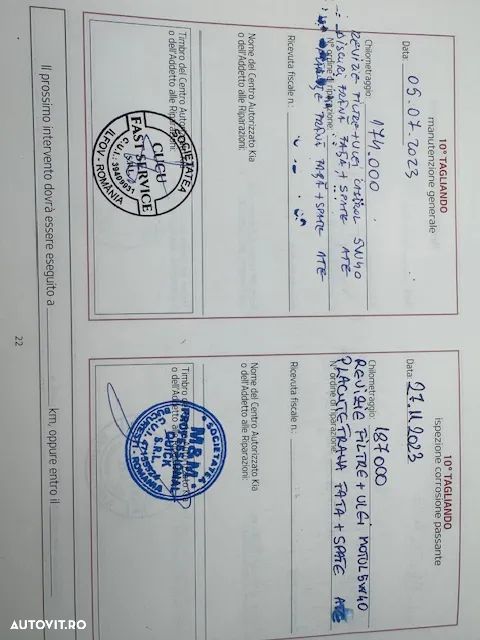 10° TAGLIANDO
manutenzione generale
Data: 05.07.2023
Chilometraggio: 174.000
REVIZIE FILTRE + ULEI CASTROL 5W40
N° ordine di riparazione:
DISCURI FRANA FATA + SPATE ATE
FRANA FATA + SPATE ATE
Ricevuta fiscale n.:
Nome del Centro Autorizzato Kia
o dell'Addetto alle Riparazioni:
Timbro del Centro Autorizzato
o dell'Addetto alle Riparazioni:
SOCIETATEA
CUCU
FAST SERVICE
S.R.L.
C.U.I.: 39409931
ILFOV - ROMANIA
10° TAGLIANDO
ispezione corrosione passante
Data: 27.11.2023
Chilometraggio: 187000
REVIZIE FILTRE + ULEI MOTUL 5W40
N° ordine di riparazione:
PLACUTE FRANA FATA + SPATE ATE
Ricevuta fiscale n.:
Nome del Centro Autorizzato Kia
o dell'Addetto alle Riparazioni:
Timbro del Centro Autorizzato
o dell'Addetto alle Riparazioni:
SOCIETATEA
M&M
PROFESIONAL
S.R.L.
BUCURESTI - ROMANIA
Il prossimo intervento dovrà essere eseguito a
km, oppure entro il
22
AUTOVIT.RO